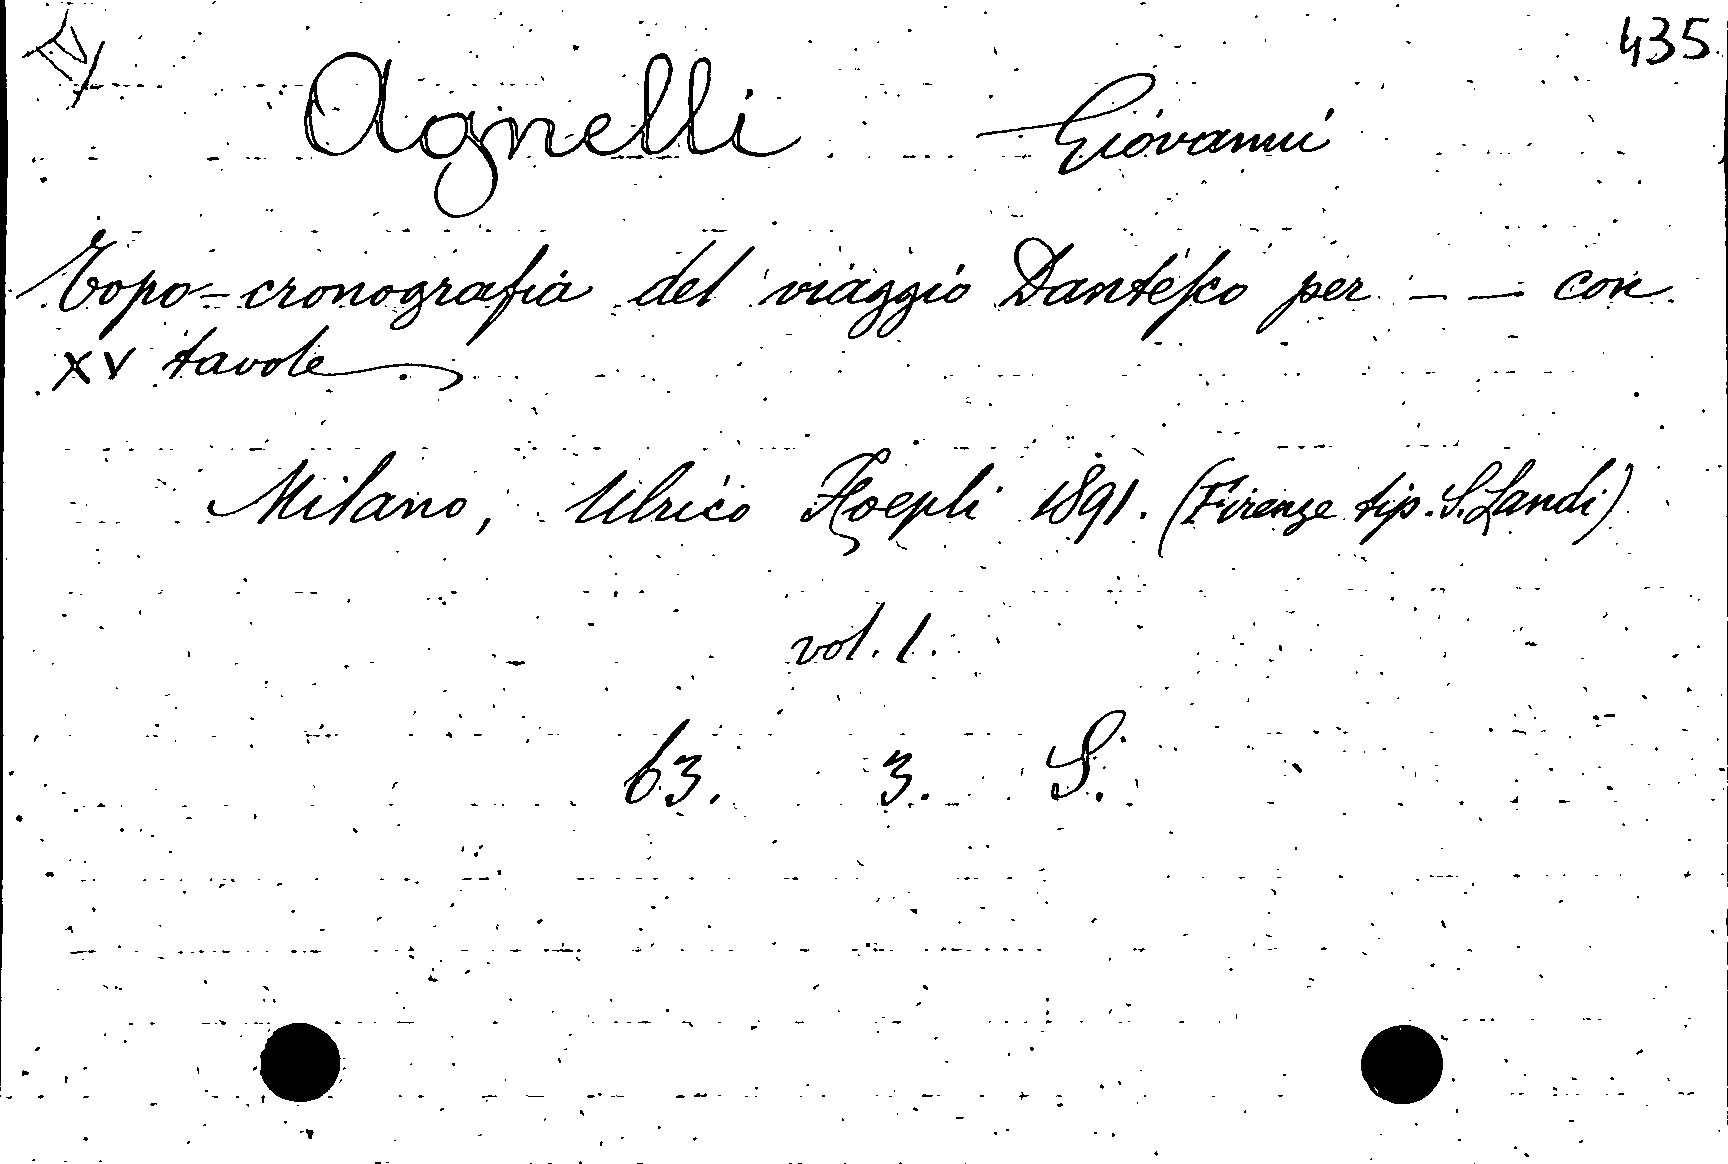 IV
435
Agnelli Giovanni
Topo-cronografia del viaggio Dantesco per — — con
XV tavole.
Milano, Ulrico Hoepli 1891. (Firenze tip. S. Landi)
vol. 1.
63. 3. S.